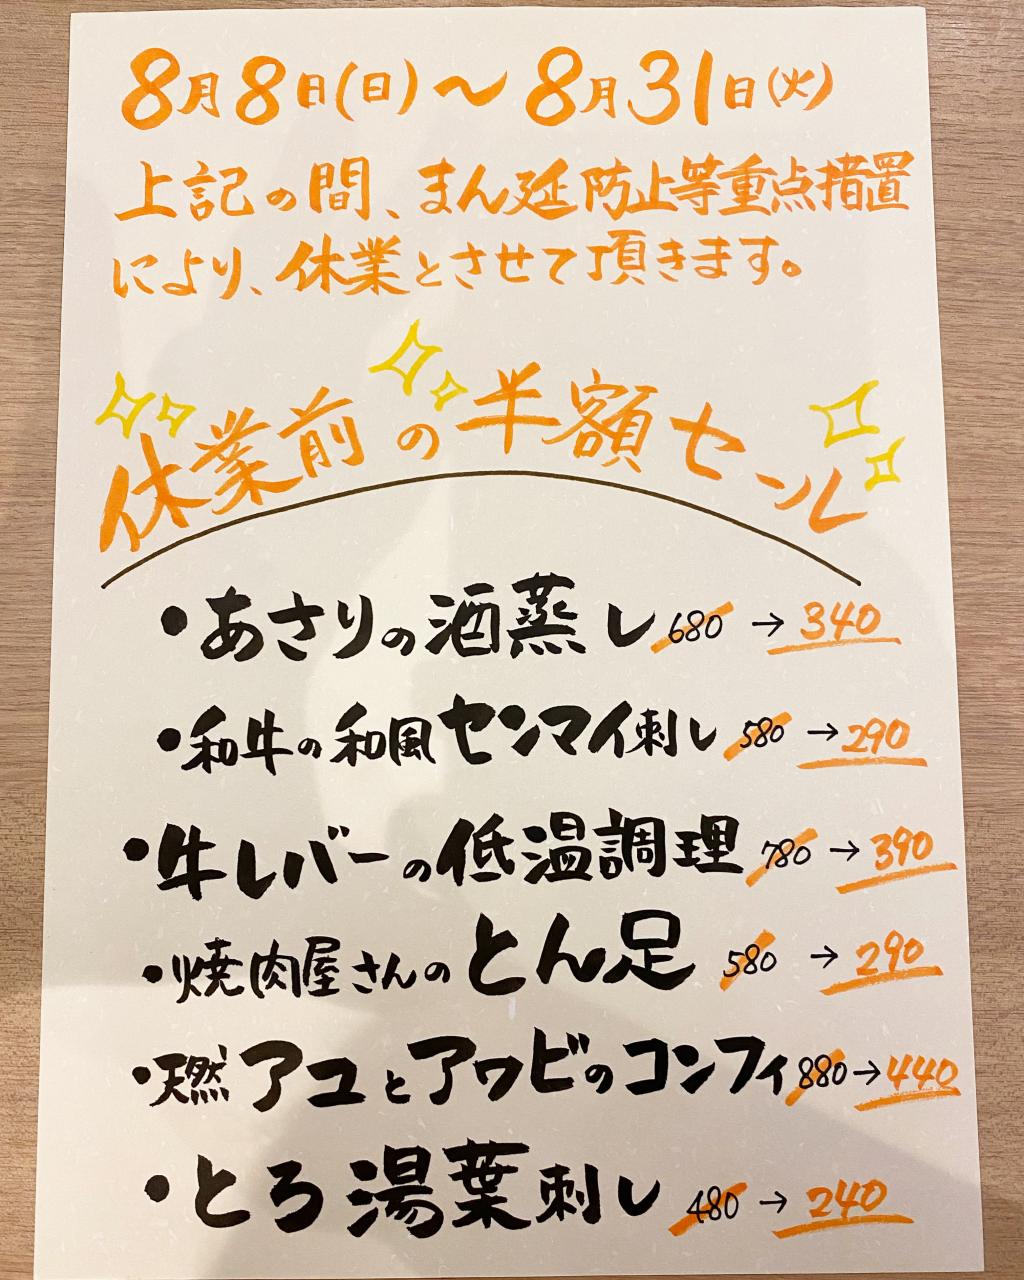 8月8日(日)〜8月31日(火)
上記の間、まん延防止等重点措置
により、休業とさせて頂きます。
休業前の半額セール
・あさりの酒蒸し 680 → 340
・和牛の和風センマイ刺し 580 → 290
・牛レバーの低温調理 780 → 390
・焼肉屋さんのとん足 580 → 290
・天然アユとアワビのコンフィ 880 → 440
・とろ湯葉刺し 480 → 240